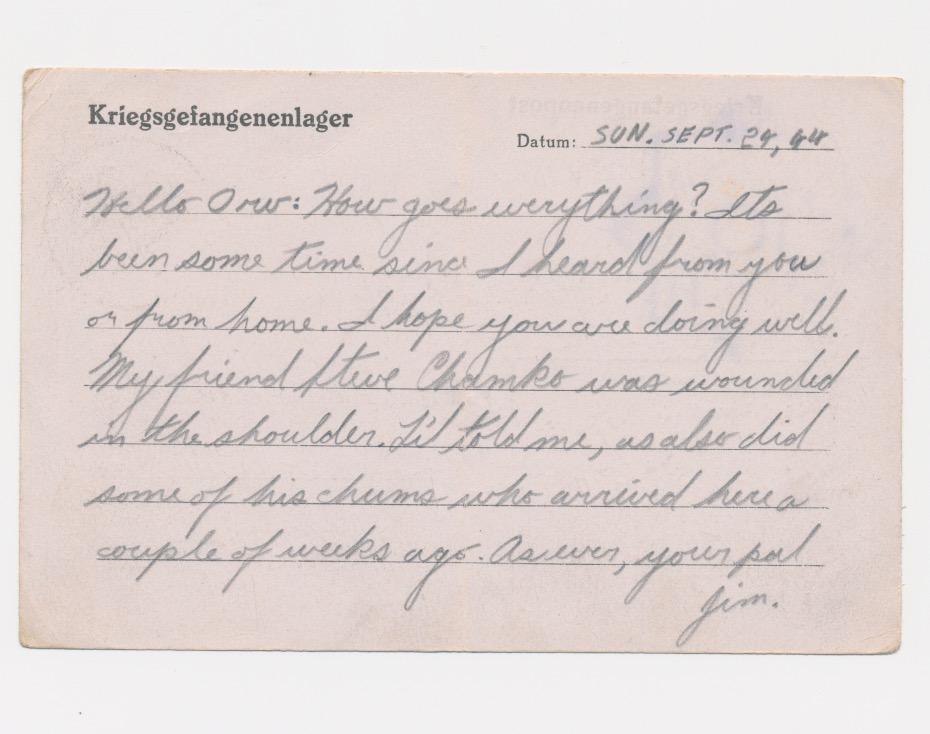 Kriegsgefangenenlager
Datum: SUN. SEPT. 24, 44
Hello Orv: How goes everything? Its
been some time since I heard from you
or from home. I hope you are doing well.
My friend Steve Chamko was wounded
in the shoulder. Lil told me, as also did
some of his chums who arrived here a
couple of weeks ago. As ever, your pal
Jim.